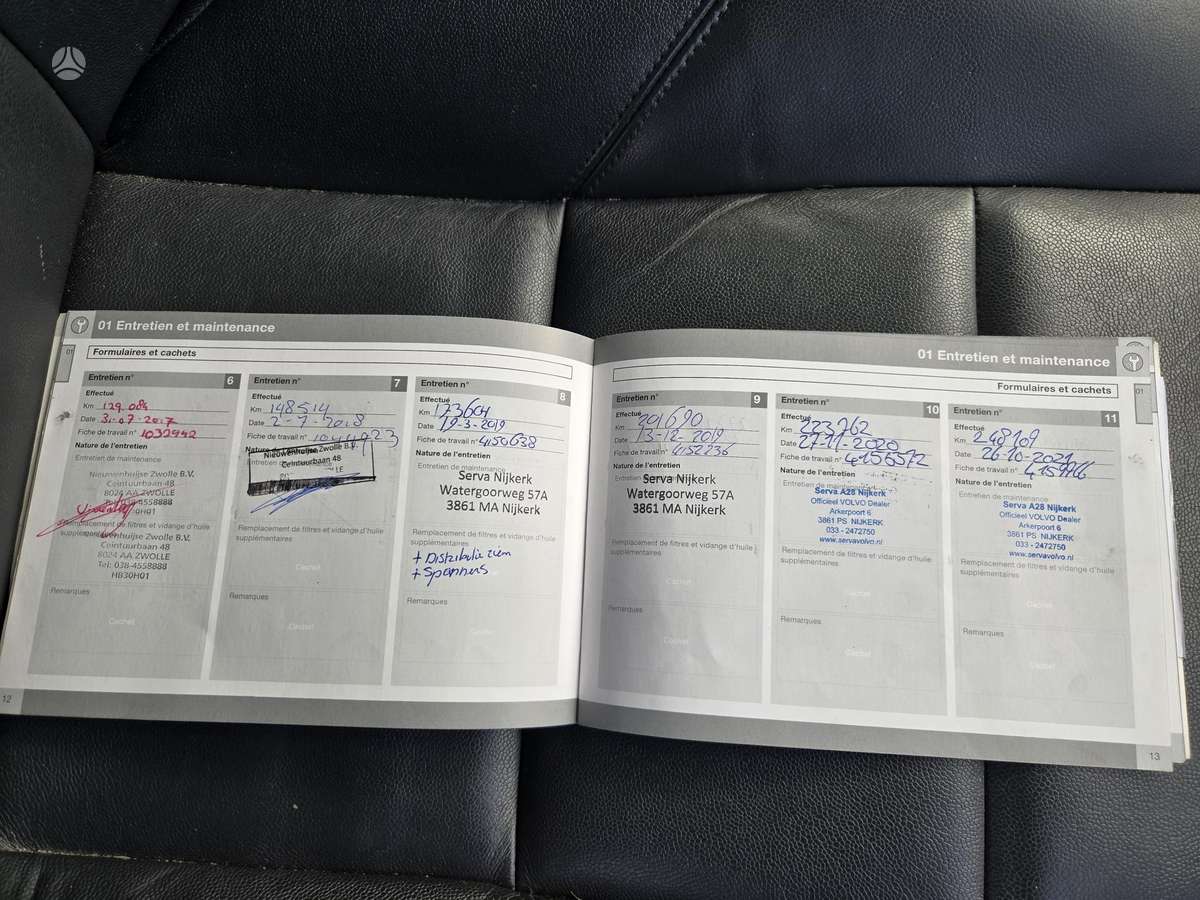 01 Entretien et maintenance
01
Formulaires et cachets
Entretien n° 6
Effectué
Km 129.084
Date 31-07-2017
Fiche de travail n° 1032942
Nature de l'entretien
Entretien de maintenance
Nieuwenhuijse Zwolle B.V.
Ceintuurbaan 48
8024 AA ZWOLLE
Remplacement de filtres et vidange d'huile
Ceintuurbaan 48
8024 AA ZWOLLE
Tel: 038-4558888
HB30H01
Remarques
Cachet
Entretien n° 7
Effectué
Km 148514
Date 2-7-2018
Fiche de travail n°
Nature de l'entretien
Nieuwenhuijse Zwolle B.V.
Ceintuurbaan 48
Remplacement de filtres et vidange d'huile
supplémentaires
Cachet
Remarques
Cachet
Entretien n° 8
Effectué
Km 173604
Date 19-3-2019
Fiche de travail n° 4150638
Nature de l'entretien
Entretien de maintenance
Serva Nijkerk
Watergoorweg 57A
3861 MA Nijkerk
Remplacement de filtres et vidange d'huile
supplémentaires
+ Distributie riem
+ Spanners
Remarques
12
01 Entretien et maintenance
Formulaires et cachets
01
Entretien n° 9
Effectué
Km 201690
Date 13-12-2019
Fiche de travail n° 4152236
Nature de l'entretien
Entretien de maintenance
Serva Nijkerk
Watergoorweg 57A
3861 MA Nijkerk
Remplacement de filtres et vidange d'huile
supplémentaires
Cachet
Remarques
Cachet
Entretien n° 10
Effectué
Km 223762
Date 27-11-2020
Fiche de travail n° 4155572
Nature de l'entretien
Entretien de maintenance
Serva A28 Nijkerk
Officieel VOLVO Dealer
Arkerpoort 6
3861 PS NIJKERK
033 - 2472750
www.servavolvo.nl
Remplacement de filtres et vidange d'huile
supplémentaires
Cachet
Remarques
Cachet
Entretien n° 11
Effectué
Km 248109
Date 26-10-2021
Fiche de travail n°
Nature de l'entretien
Entretien de maintenance
Serva A28 Nijkerk
Officieel VOLVO Dealer
Arkerpoort 6
3861 PS NIJKERK
033 - 2472750
www.servavolvo.nl
Remplacement de filtres et vidange d'huile
supplémentaires
Cachet
Remarques
Cachet
13